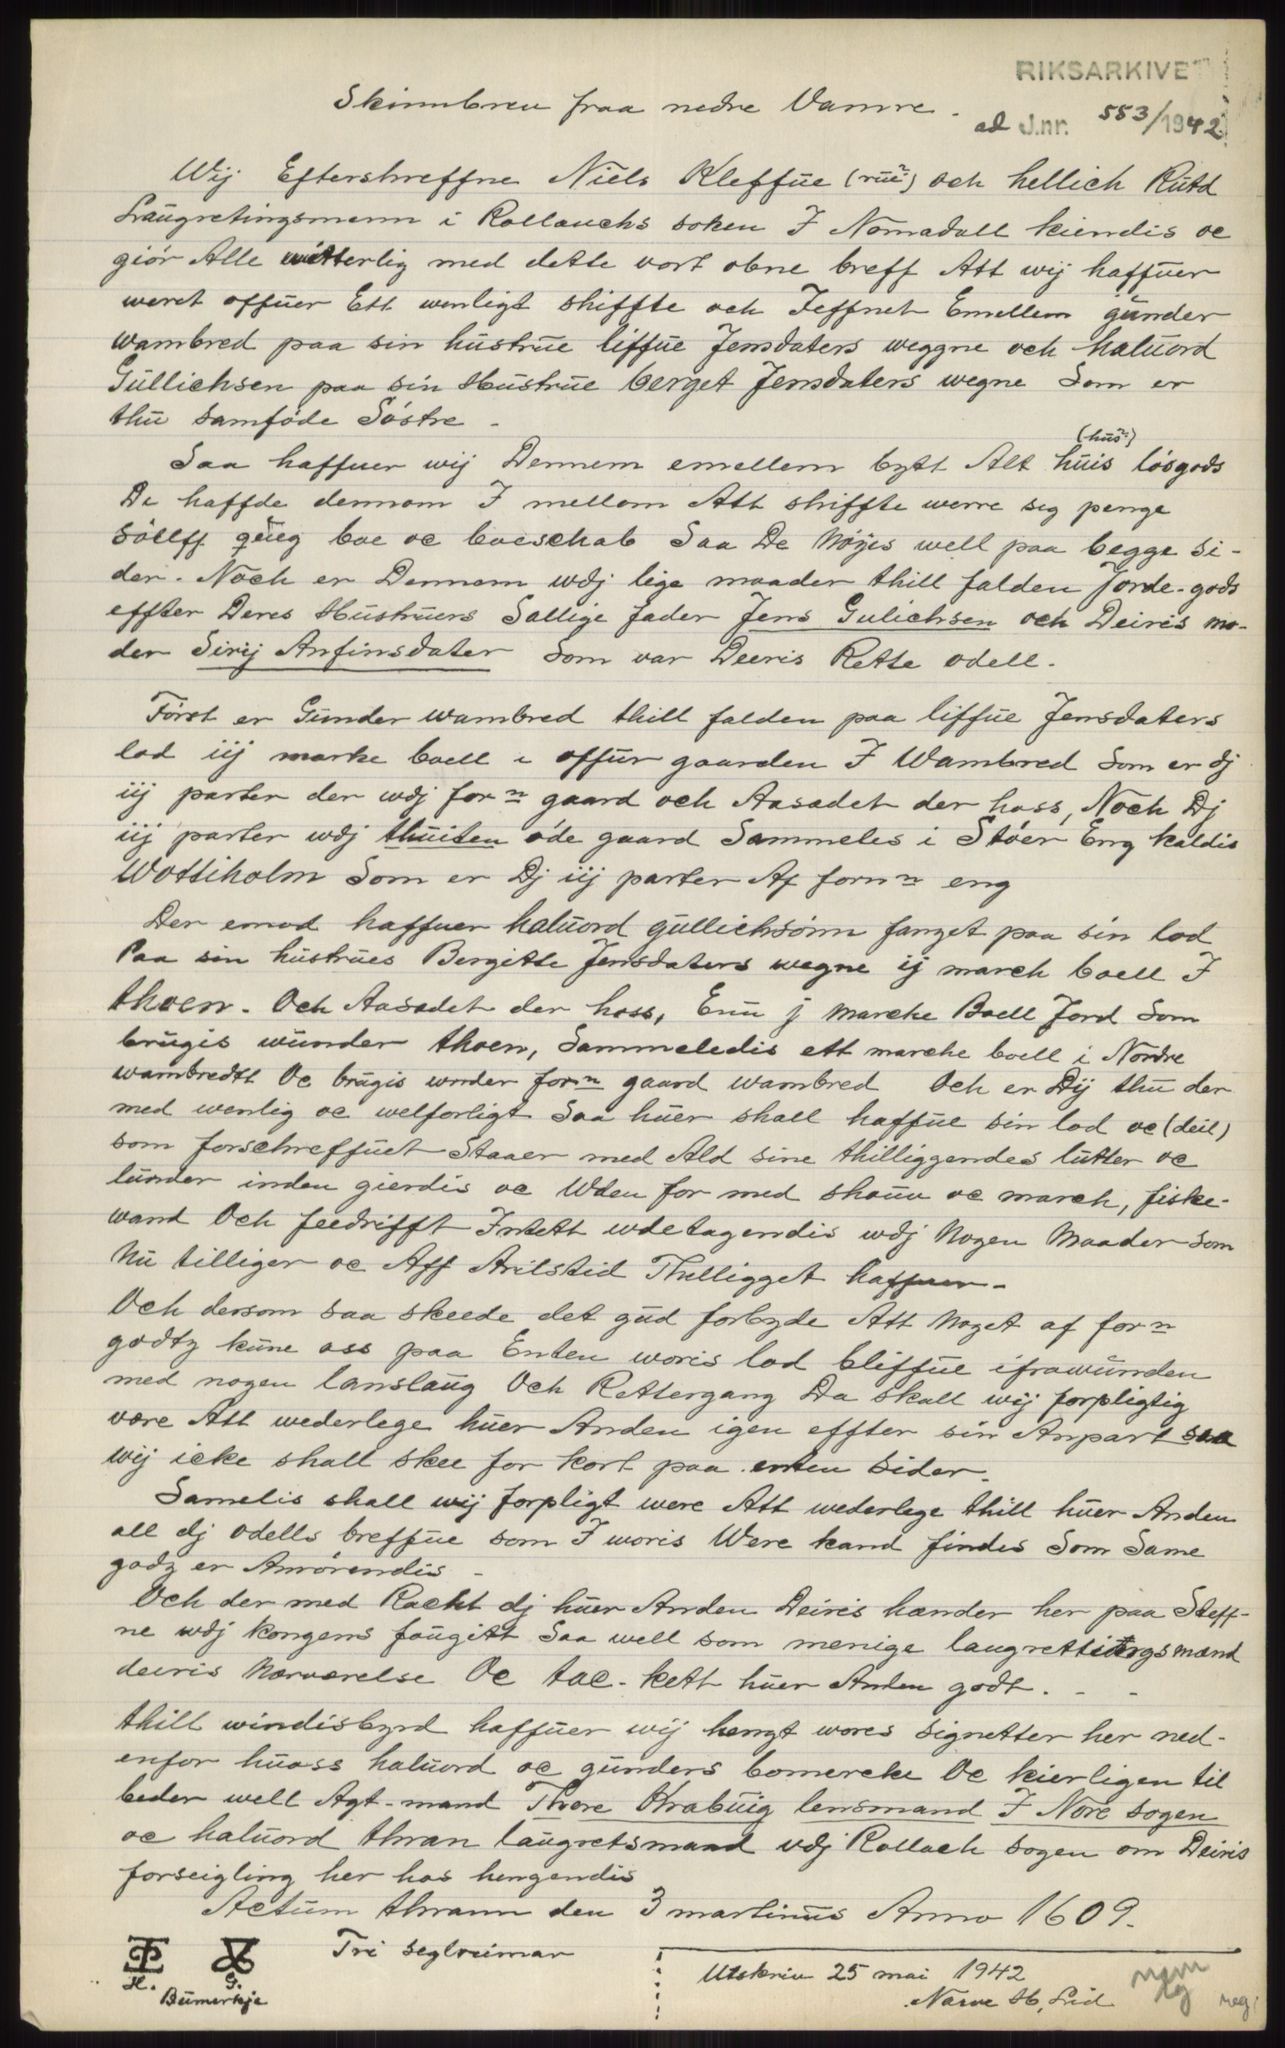 RIKSARKIVET
Skinnbrev fraa nedre Vamre.
ad J.nr. 553/1942
Wij Efterskreffne Niels Kleffue (rue²) och hellich Rutd
Laugretingsmenn i Rollauchs soken I Nomadall kiendis oc
giör Alle witterlig med dette vort obne breff Att wij haffuer
weret offuer Ett wenligt skiffte och Jeffnet Emellem gunder
Wambred paa sin hustrue liffue Jensdaters weggne och haluord
Gullichsen paa sin Hustrue berget Jensdaters wegne Som er
thu samföde Söstre -
(hus²)
Saa haffuer wij Dennem emellem bytt Alt huis lösgods
De haffde dennom I mellom Att skiffte werre seg penge
Söllff queg boe oc boeschab Saa De Nøyes well paa begge si-
der. Noch er Dennom wdj lige maader thill falden Jorde-gods
effter Deres Hustruers Sallige fader Jens Gulichsen och Deiris mo-
der Sirij Anfinsdater Som var Deeris Rette odell.
Först er Gunder wambred thill falden paa liffue Jensdaters
lod iij marke boell i offur gaarden I Wambred Som er dj
iij parter der wdj forn gaard och Aasadet der hoss, Noch Dj
iij parter wdj thuiten öde gaard Sammeles i Stöer Eng kaldis
Wottiholm Som er Dj iij parter Af fornn eng
Der emod haffuer haluord gullichsönn fanget paa sin lod
Paa sin hustrues Bergitte Jensdaters wegne ij march boell I
thoen. Och Aasadet der hoss, Enu j marcke Boell Jord Som
brugis wunder thoen, Sammeledis ett marcke boell i Nordre
wambredtt Oc brugis wnder forn gaard wambred Och er Dij thu der
med wenlig oc welforligt Saa huer skall haffue sin lod oc (deil)
som forschreffuet Staaer med Ald sine thilliggendes lutter oc
lunder inden gierdis oc Wden for med skouu oc march, fiske-
wand Och feedrifft Intett wdetagendis wdj Nogen Maader Som
Nu tilliger oc Aff Arilstid Thilligget haffuer-
Och dersom saa skeede det gud forbyde Att Noget af forn
godtz kune oss paa Enten woris lod bliffue ifrawunden
med nogen lanslaug Och Rettergang Da skall wij forpligtig
være Att wederlege huer Anden igen effter sin Anpart saa
wij icke skall skee for kort paa enten sider.
Samelis skall wij forpligt were Att wederlege thill huer Anden
all dj odells breffue som I woris Were kand findes Som Same
godz er Anrörendis -
Och der med Rackt dj huer Anden Deiris hænder her paa Steff-
ne wdj kongens fougitt Saa well som menige laugrettingsmænd
deiris Nærværelse Oc tac-kett huer Anden godt. - -
thill windisbyrd haffuer wij hengt wores signetter her ned-
enfor huoss haluord oc gunders bomercke Oc kierligen til
beder well Agt-mand Thore Krabuig lensmand I Nore sogen
oc haluord thran laugretsmand vdj Rollach sogen om Deiris
forseigling her hos hengendis
Actum thrann den 3 martinus Anno 1609.
H. G.
Bumerkje
Tri seglreimar
Utskriv 25 mai 1942
Narve H. Lid